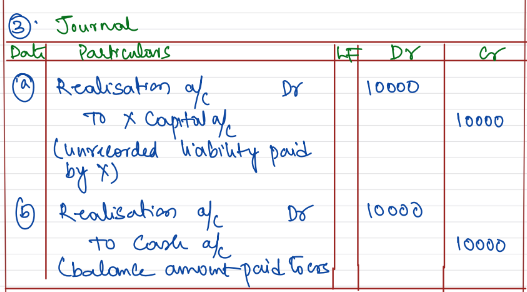 ③. Journal
Date Particulars LF Dr Cr
(a) Realisation a/c Dr 10000
To X Capital a/c 10000
(unrecorded liability paid
by X)
(b) Realisation a/c Dr 10000
To Cash a/c 10000
(balance amount paid to crs